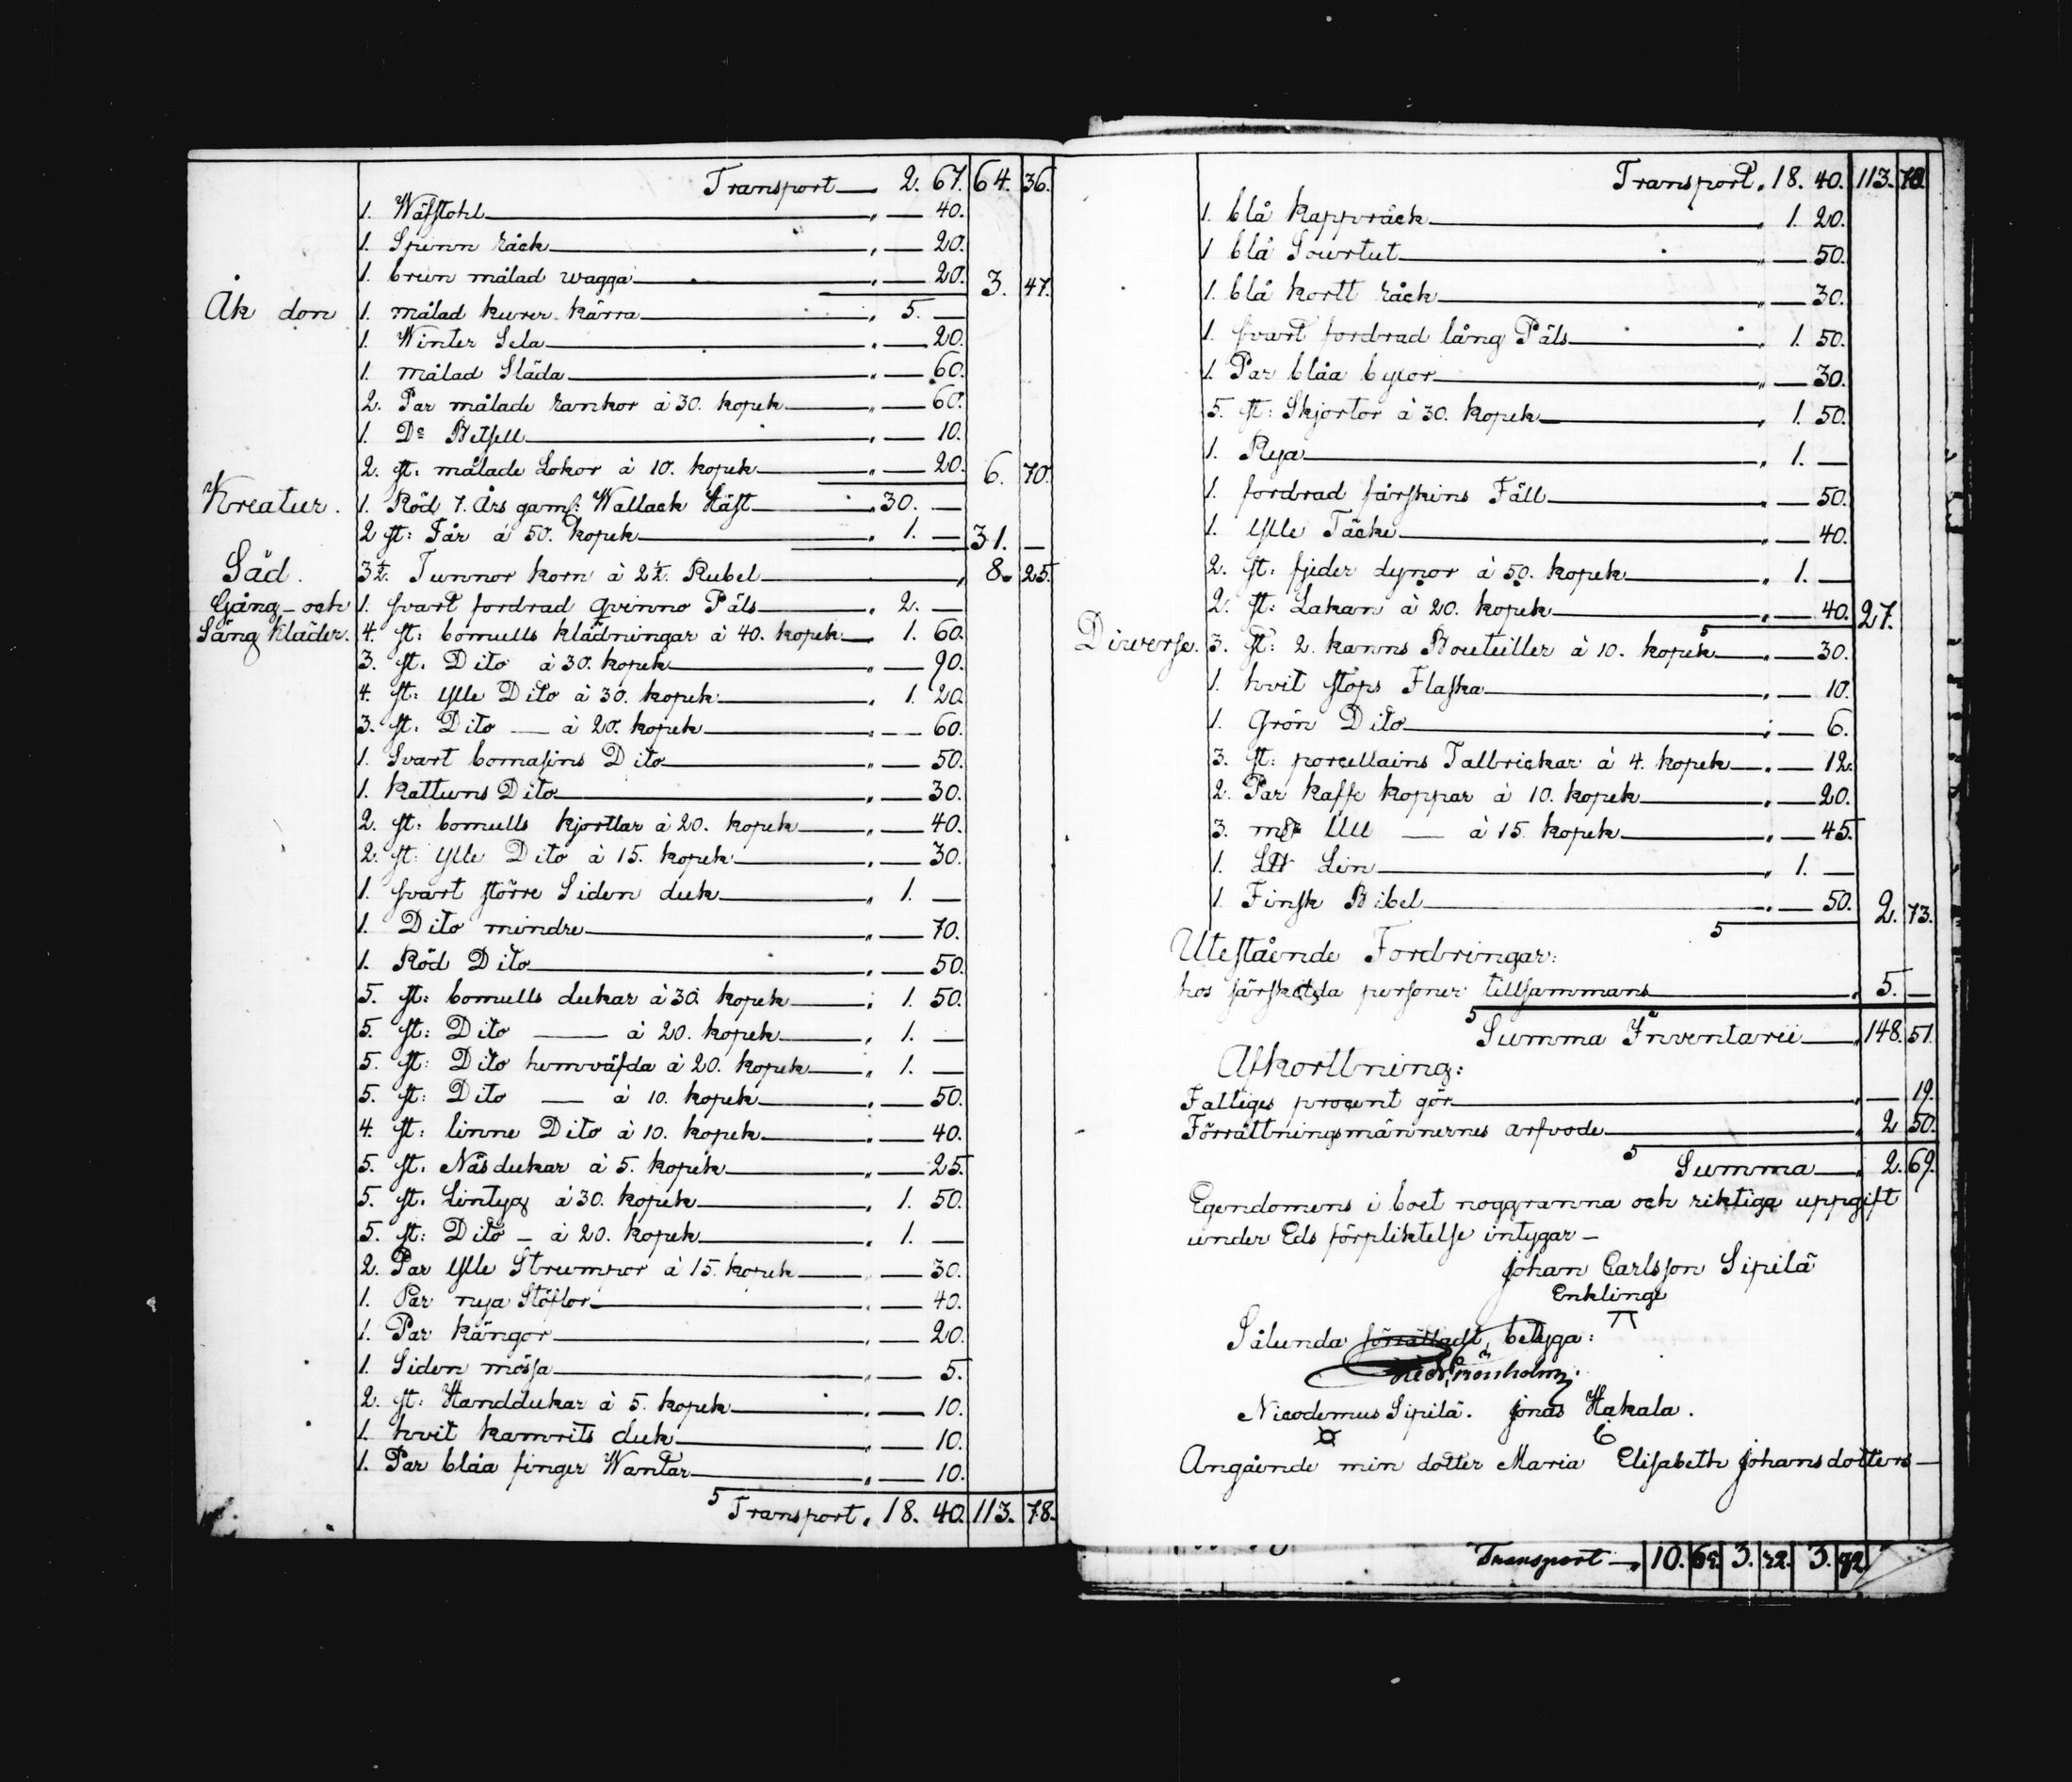 Transport 2. 67. 64. 36.
1. Wäfstohl " — 40.
1. Spinn råck " — 20.
1. brun målad wagga " — 20. 3. 47.
Åk don 1. målad kurer kärra " 5. —
1. Winter Sela " — 20.
1. målad Släda " — 60.
2. Par målade rankor à 30. kopek " — 60.
1. Do Betsell " — 10.
2. st. målade Lokor à 10. kopek " — 20. 6. 70.
Kreatur. 1. Röd 7. Års gaml: Wallack Häst " 30. —
2 st: Får à 50. kopek " 1. — 31. —
Säd. 3½. Tunnor korn à 2½. Rubel " 8. 25.
Gång- och 1. svart fordrad qvinno Päls " 2. —
Säng kläder. 4. st: bomulls klädningar à 40. kopek 1. 60.
3. st. Dito à 30. kopek " — 90.
4. st: Ylle Dito à 30. kopek " 1. 20.
3. st. Dito — à 20. kopek " — 60.
1. Svart bomasins Dito " — 50.
1. Kattuns Dito " — 30.
2. st: bomulls kjortlar à 20. kopek " — 40.
2. st: Ylle Dito à 15. kopek " — 30.
1. svart större Siden duk " 1. —
1. Dito mindre " — 70.
1. Röd Dito " — 50.
5. st: bomulls dukar à 30. kopek " 1. 50.
5. st: Dito — à 20. kopek " 1. —
5. st: Dito hemväfda à 20. kopek " 1. —
5. st: Dito — à 10. kopek " — 50.
4. st: linne Dito à 10. kopek " — 40.
5. st. Näsdukar à 5. kopek " — 25.
5. st. Lintyg à 30. kopek " 1. 50.
5. st: Dito — à 20. kopek " 1. —
2. Par Ylle Strumpor à 15. kopek " — 30.
1. Par nya Stöflor " — 40.
1. Par kängor " — 20.
1. Siden mössa " — 5.
2. st: Handdukar à 5. kopek " — 10.
1. hvit kamrits duk " — 10.
1. Par blåa finger Wantar " — 10.
Transport " 18. 40. 113. 78.
Transport " 18. 40. 113. 78.
1. blå kappråck " 1. 20.
1 blå Sourtut " — 50.
1. blå kortt råck " — 30.
1. svart fordrad lång Päls " 1. 50.
1. Par blåa byxor " — 30.
5. st: Skjortor à 30. kopek " 1. 50.
1. Rya " 1. —
1. fordrad fårskins Fäll " — 50.
1. Ylle Täcke " — 40.
2. st: fjeder dynor à 50. kopek " 1. —
2. st: Lakan à 20. kopek " — 40. 27.
Diverse. 3. st: 2. kanns Bouteiller à 10. kopek " — 30.
1. hvit stops Flaska " — 10.
1. Grön Dito " — 6.
3. st: porcellains Tallrickar à 4. kopek " — 12.
2. Par kaffe koppar à 10. kopek " — 20.
3. Ull — à 15. kopek " — 45.
1. Lin " 1. —
1. Finsk Bibel " — 50. 2. 73.
Utestående Fordringar:
hos särskilda personer tillsammans " 5. —
Summa Inventarii " 148. 51.
Afkorttning:
Fattiges procent gör " — 19.
Förrättningsmännernes arfvode " 2 50.
Summa " 2. 69.
Egendomens i boet noggranna och riktiga uppgift
under Eds förpliktelse intygar —
Johan Carlsson Sipilä
Enkling
Sålunda förrättadt, betyga:
Nicodemus Sipilä. Jonas Hakala.
Angående min dotter Maria Elisabeth Johansdotters —
Transport 10. 3. 3.